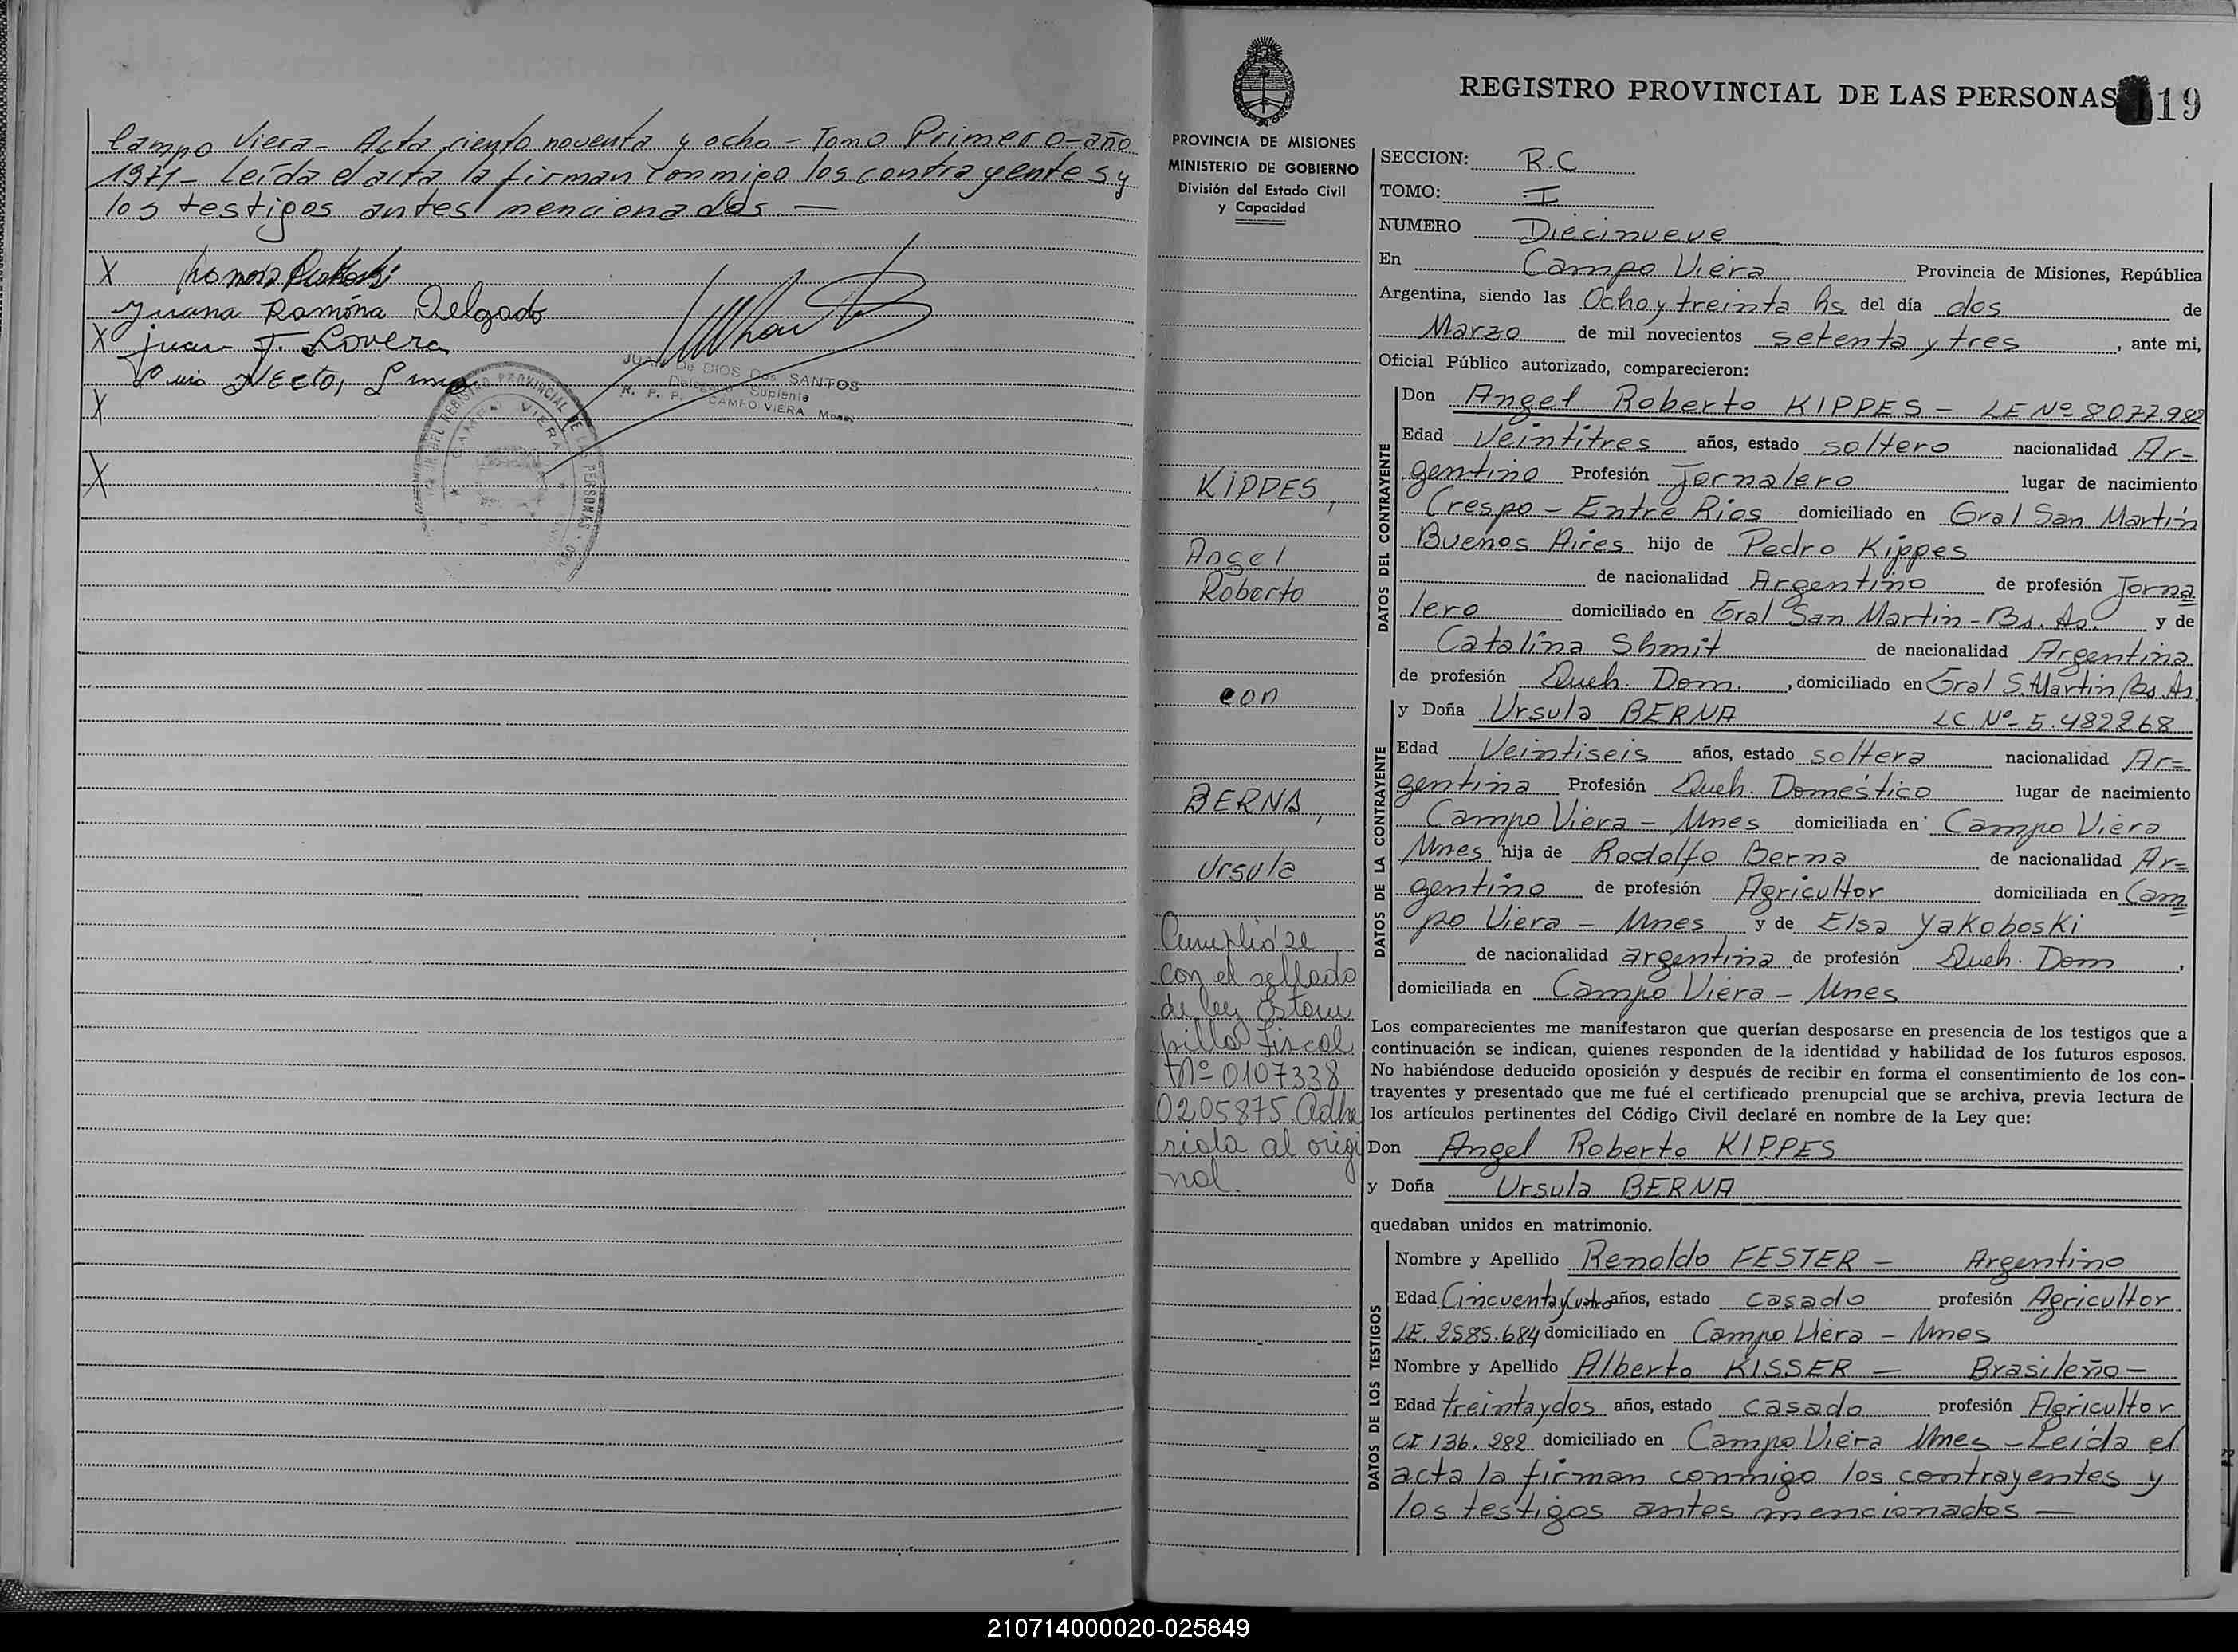 Campo Viera - Acta ciento noventa y ocho - Tomo Primero - año
1971 - Leída el acta la firman conmigo los contrayentes y
los testigos antes mencionados. —
X
Juana Ramóna Delgado
X Juan F. Lovera
X
X
JUAN De DIOS Dos SANTOS
Delegado Suplente
R. P. P. CAMPO VIERA Mnes.
REGISTRO PROVINCIAL DE LAS PERSONAS
119
PROVINCIA DE MISIONES
MINISTERIO DE GOBIERNO
División del Estado Civil
y Capacidad
KIPPES,
Angel
Roberto
con
BERNA,
Ursula
Cumplióse
con el sellado
de ley Estam
pilla Fiscal
Nº 0107338
0205875 Adhe
rida al origi
nal.
SECCION: R.C
TOMO: I
NUMERO Diecinueve
En Campo Viera Provincia de Misiones, República
Argentina, siendo las Ocho y treinta hs del día dos de
Marzo de mil novecientos setenta y tres, ante mi,
Oficial Público autorizado, comparecieron:
DATOS DEL CONTRAYENTE
Don Angel Roberto KIPPES - LE Nº 8077.982
Edad Veintitres años, estado soltero nacionalidad Ar=
gentino Profesión Jornalero lugar de nacimiento
Crespo - Entre Rios domiciliado en Gral San Martín
Buenos Aires hijo de Pedro Kippes
de nacionalidad Argentino de profesión Jorna
lero domiciliado en Gral San Martin - Bs. As. y de
Catalina Shmit de nacionalidad Argentina
de profesión Queh. Dom., domiciliado en Gral S. Martin Bs As.
DATOS DE LA CONTRAYENTE
y Doña Ursula BERNA LC. Nº- 5.482268
Edad Veintiseis años, estado soltera nacionalidad Ar=
gentina Profesión Queh. Doméstico lugar de nacimiento
Campo Viera - Mnes domiciliada en Campo Viera
Mnes hija de Rodolfo Berna de nacionalidad Ar=
gentino de profesión Agricultor domiciliada en Cam
po Viera - Mnes y de Elsa Yakoboski
de nacionalidad argentina de profesión Queh. Dom,
domiciliada en Campo Viera - Mnes
Los comparecientes me manifestaron que querían desposarse en presencia de los testigos que a
continuación se indican, quienes responden de la identidad y habilidad de los futuros esposos.
No habiéndose deducido oposición y después de recibir en forma el consentimiento de los con-
trayentes y presentado que me fué el certificado prenupcial que se archiva, previa lectura de
los artículos pertinentes del Código Civil declaré en nombre de la Ley que:
Don Angel Roberto KIPPES
y Doña Ursula BERNA
quedaban unidos en matrimonio.
DATOS DE LOS TESTIGOS
Nombre y Apellido Renoldo FESTER - Argentino
Edad Cincuenta y Cuatro años, estado casado profesión Agricultor
LE. 2585.684 domiciliado en Campo Viera - Mnes
Nombre y Apellido Alberto KISSER - Brasileño -
Edad treinta y dos años, estado casado profesión Agricultor
CI 136.282 domiciliado en Campo Viera Mnes - Leída el
acta la firman conmigo los contrayentes y
los testigos antes mencionados —
210714000020-025849